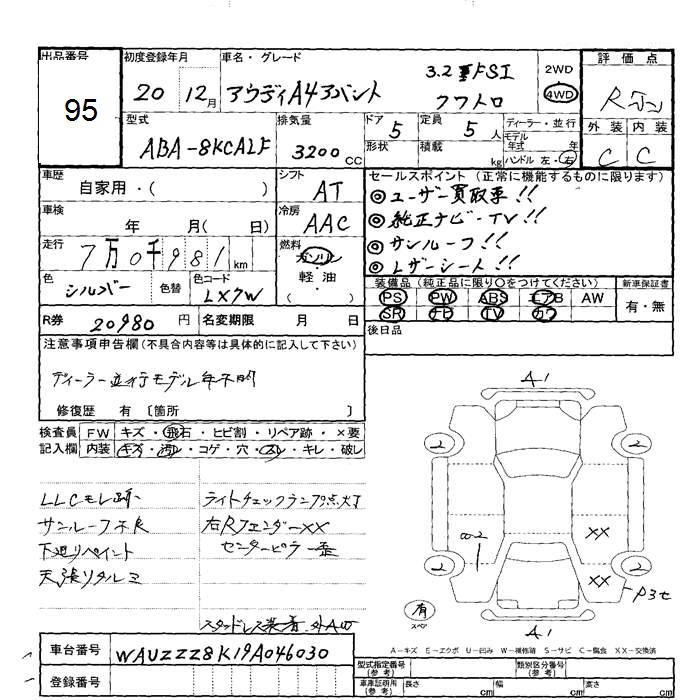 出品番号
95
初度登録年月
20 12月
車名・グレード
アウディA4アバント
3.2 FSI
クワトロ
2WD
4WD
評価点
R
外装 内装
C C
型式
ABA-8KCALF
排気量
3200 CC
ドア 5
形状
定員 5 人
積載 kg
ディーラー・並行
モデル年式 年
ハンドル 左・右
車歴
自家用・( )
シフト
AT
車検
年 月( 日)
冷房
AAC
走行
7万0千981 km
燃料
ガソリン
軽油
( )
色
シルバー
色替
色コード
LX7W
セールスポイント (正常に機能するものに限ります)
◎ユーザー買取車!!
◎純正ナビ・TV!!
◎サンルーフ!!
◎レザーシート!!
装備品 (純正品に限り〇をつけてください)
PS PW ABS エアB AW
SR ナビ TV カワ
新車保証書
有・無
R券 20980 円
名変期限 月 日
後日品
注意事項申告欄(不具合内容等は具体的に記入して下さい)
ディーラー並行モデル年不明
修復歴 有 〔箇所 〕
検査員記入欄
FW キズ・飛石・ヒビ割・リペア跡・×要
内装 キズ・汚れ・コゲ・穴・スレ・キレ・破し
LLCモレ跡
サンルーフ不良
下廻りペイント
天張りタルミ
ライトチェックランプ点灯
右Rフェンダー××
センターピラー歪
スタッドレス装着
A1
2 2
××
××
2 2
P3セ
A1
有
スペア
A-キズ E-エクボ U-凹み W-補修跡 S-サビ C-腐食 XX-交換済
車台番号 WAUZZZ8K19A046030
登録番号
型式指定番号 (参考)
類別区分番号 (参考)
車庫証明用 (参考)
長さ cm 幅 cm 高さ cm